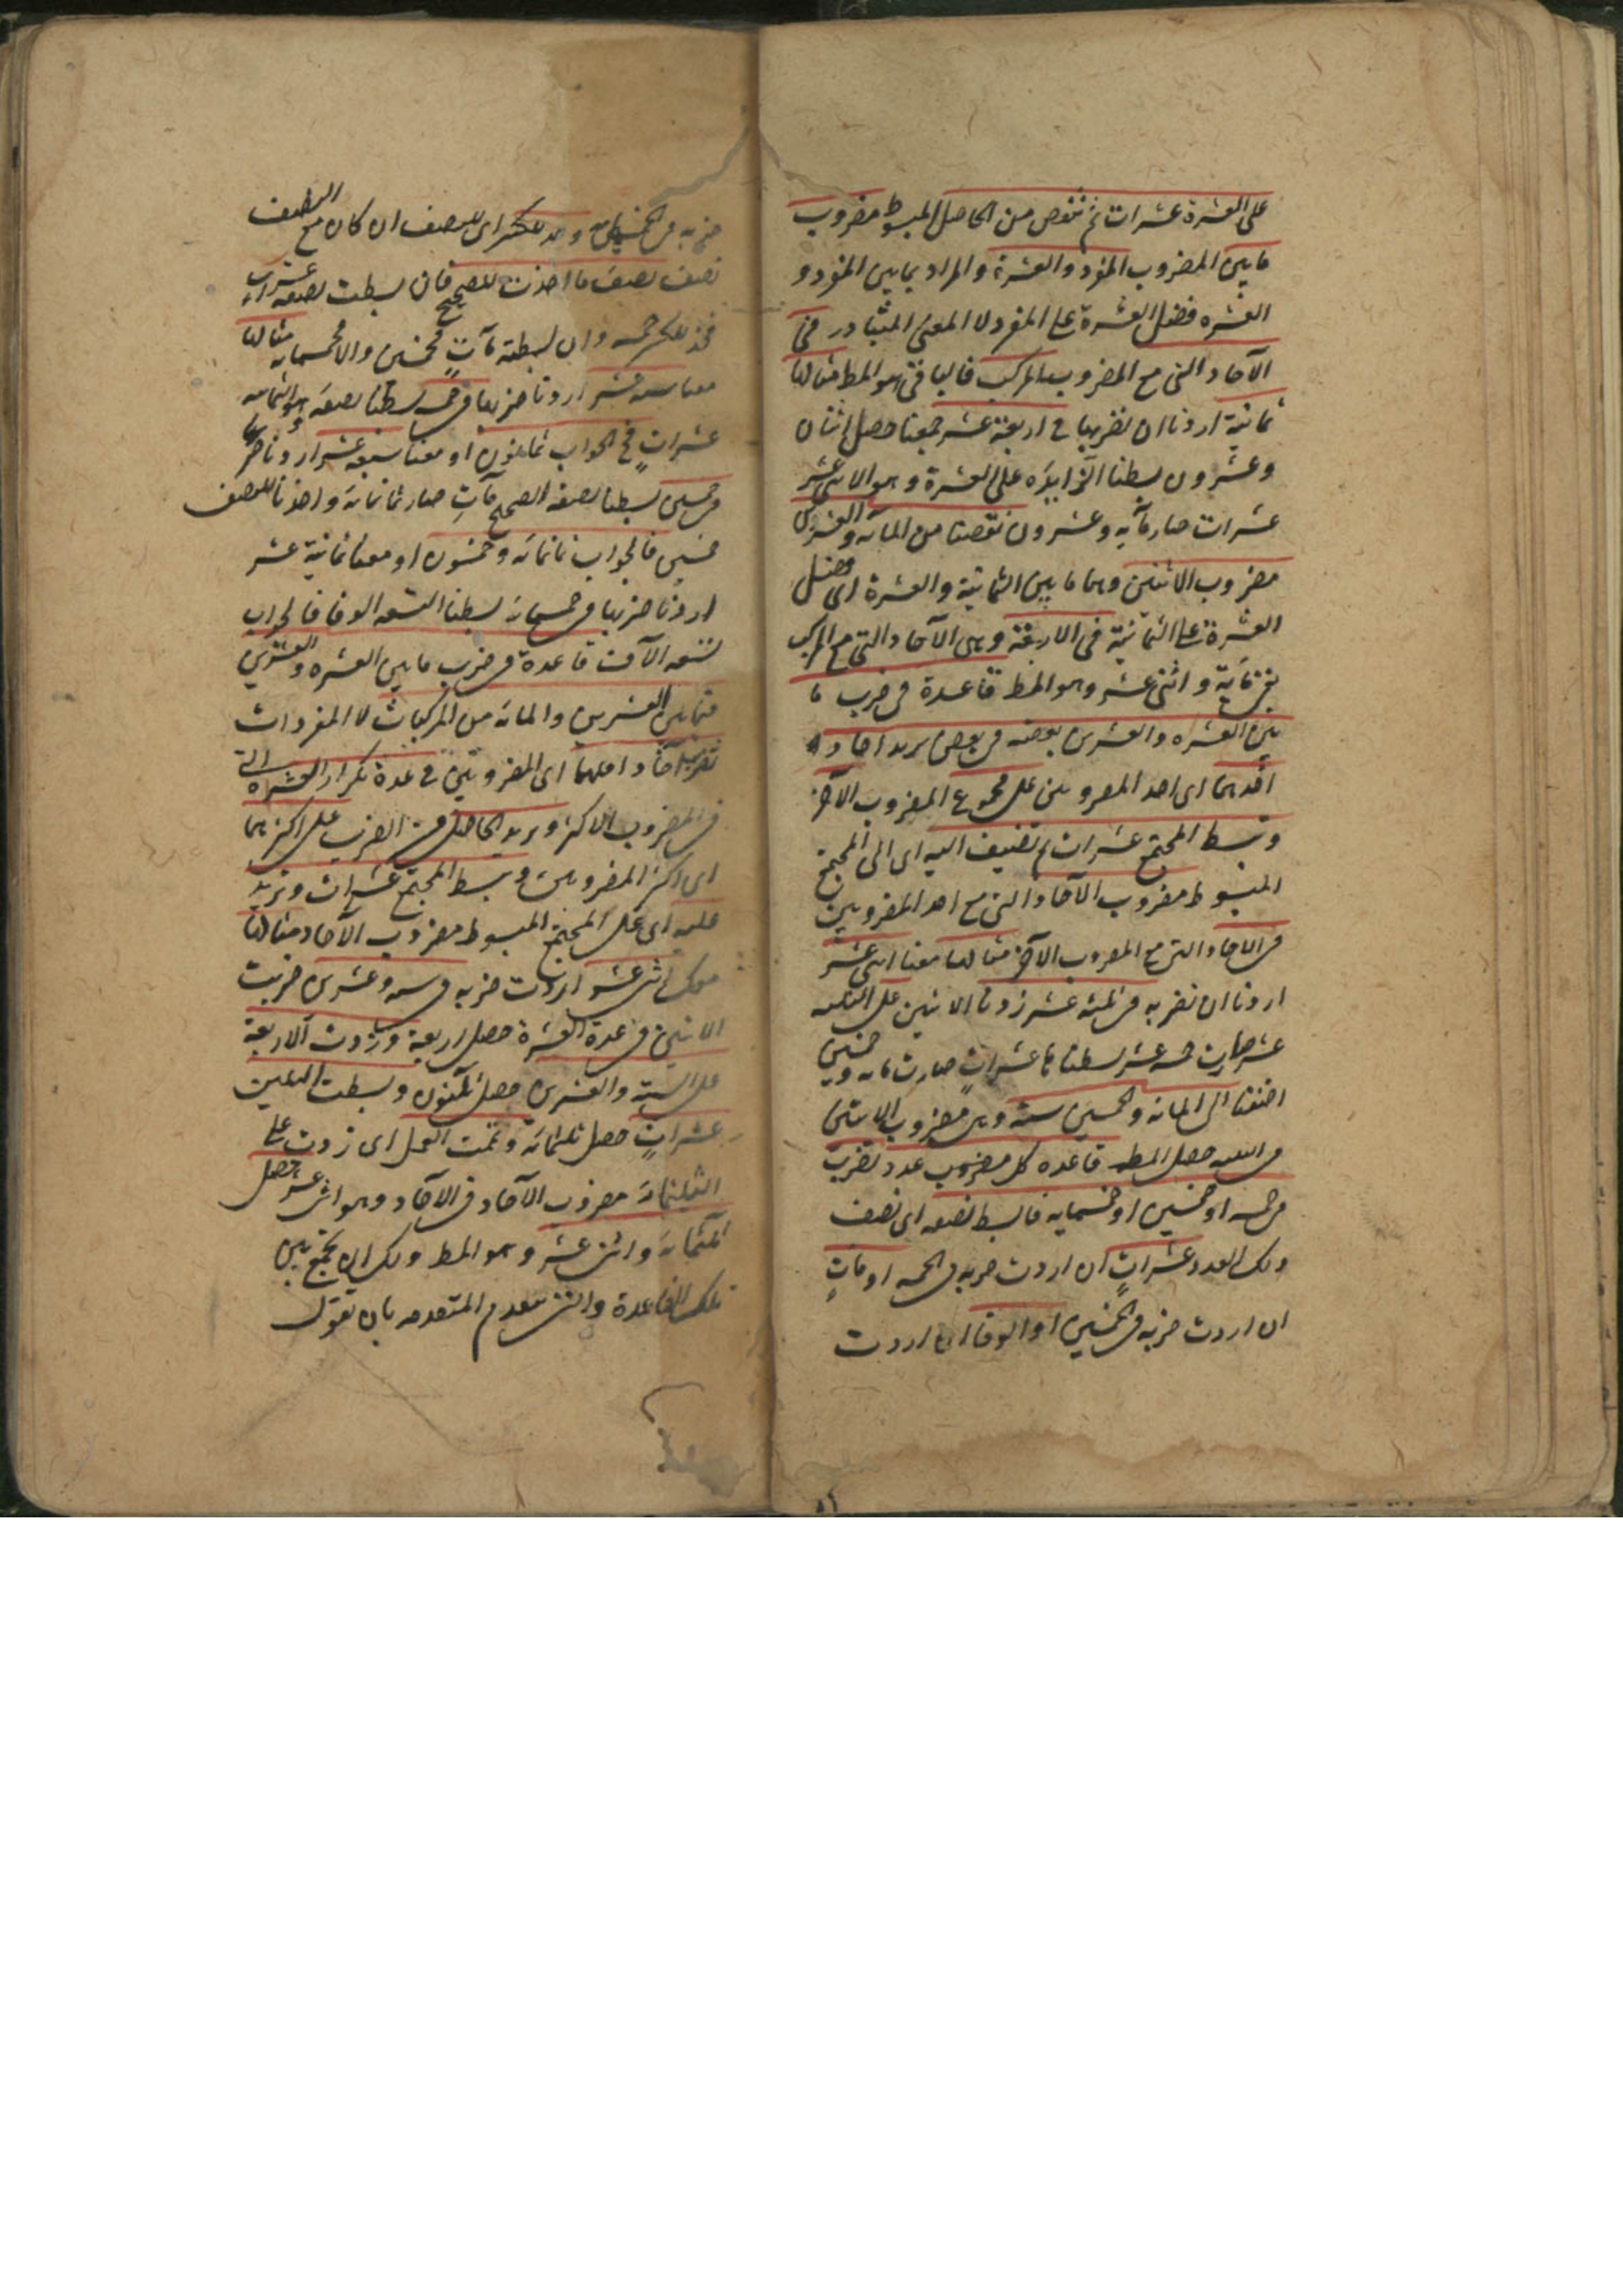 على العشرة عشرات ثم تنقص من الحاصل المبسوط مضروب
ما بين المضروب المفرد والعشرة والمراد بما بين المفرد و
العشره فضل العشرة على المفرد لا المعنى المتبادر في
الآحاد التى مع المضروب المركب فالباقى هو المط مثالها
ثمانية اردنا ان نضربها في اربعة عشر جمعنا حصل اثنان
وعشرون بسطنا الزايده على العشرة وهو الاثنى عشر
عشرات صار مأيه وعشرون نقصنا من المأته والعشرين
مضروب الاثنين وهما ما بين الثمانية والعشرة اى فضل
العشرة على الثمانية فى الاربعة وهى الآحاد التى مع المركب
بقى مأية واثنى عشر وهو المط قاعدة فى ضرب ما
بين العشره والعشرين بعضه فى بعض يزيد احاد
احدهما اى احد المضروبين على مجموع المضروب الآخر
وتبسط المجتمع عشرات ثم تضيف اليه اى الى المجتمع
المبسوط مضروب الآحاد التى مع احد المضروبين
فى الاحاد التى مع المضروب الآخر مثالها معنا اثنى عشر
اردنا ان نضربه فى ثلثه عشر زدنا الاثنين على الثلثه
عشر صارت خمسه عشر بسطناها عشراتٍ صارت مائه وخمسين
اضفنا الى المائه والخمسين ستة وهى مضروب الاثنين
فى الثلثه حصل المط قاعده كل مضروب عدد تضرب
فى خمسه او خمسين او خمسمايه فابسط نصفه اى نصف
ذلك العدد عشراتٍ ان اردت ضربه فى الخمسه او مأتٍ
ان اردت ضربه فى الخمسين او الوفا ان اردت
ضربه فى الخمسمائه وخذ للكسر اى للنصف ان كان مع النصف
نصف نصف ما اخذت للصحيح فان بسطت نصفه عشرات
فخذ للكسر خمسه وان بسطته مآتٍ فخمسين والا فخمسمايه مثالها
معنا ستة عشر اردنا ضربها فى خمسه بسطنا نصفه وهو الثمانيه
عشراتٍ فالجواب ثمانون او معنا سبعة عشر اردنا ضربها
فى خمسين بسطنا نصفه الصحيح مآتٍ صار ثمانمائه واخذنا للنصف
خمسين فالجواب ثمانمائه وخمسون او معنا ثمانية عشر
اردنا ضربها فى خمسمائه بسطنا التسعه الوفا فالجواب
تسعه الآف قاعدة فى ضرب ما بين العشره والعشرين
فيما بين العشرين والمائه من المركبات لا المفردات
تضرب آحاد اقلهما اى المضروبين فى عدة تكرار العشره التى
فى المضروب الاكثر ويزيد الحاصل من الضرب على اكثرهما
اى اكثر المضروبين وتبسط المجتمع عشرات وتزيد
عليه اى على المجتمع المبسوط مضروب الآحاد مثالها
معك اثنى عشر اردت ضربه فى سته وعشرين ضربت
الاثنين فى عدة العشرة حصل اربعة وزدت الاربعة
على الستة والعشرين حصل ثلثون وبسطت الثلثين
عشراتٍ حصل ثلثمائه وتممت العمل اى زدت على
الثلثمائه مضروب الآحاد فى الآحاد وهو اثنى عشر حصل
ثلثمائه واثنى عشر وهو المط ولك ان تجمع بين
تلك القاعدة والتى تتقدم المتقدمه بان تقول